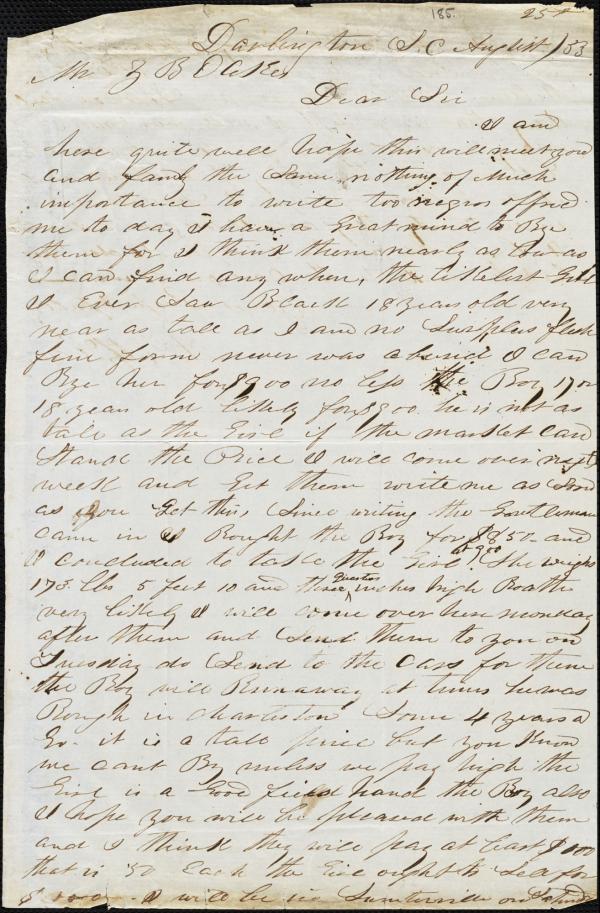 185. 25
Darlington S. C August 1/53
Mr Z B Oakes
Dear Sir
I am
here quite well hope this will meet you
and family the Same nothing of much
importance to write too negros offred
me to day I have a Great mind to Bye
them for I think them nearly as low as
I can find any where, the likelist Girl
I Ever Saw Black 18 years old very
near as tall as I am no Surpless flesh
fein form never was abused I can
Bye her for $900 no less the Boy 17 or
18 years old likely for $900. he is not as
tall as the Girl if the market can
Stand the Price I will come over next
week and Get them write me as Soon
as you Get this, Since writing the Gentleman
came in I Bought the Boy for $850- and
I concluded to take the Girl at 900 She weighs
173 lbs 5 feet 10 and three quarters inches high Boath
very likely I will come over here monday
after them and Send them to you on
Tuesday do Send to the Cars for them
the Boy will Runaway at times he was
Rough in Charleston Some 4 years a
Go. it is a tall price but you Know
we cant By unless we pay high the
Girl is a Good field hand the Boy also
I hope you will be pleased with them
and I think they will pay at least $100
that is 50 Each the Girl ought to Sell for
$1000- I will be in Sumterville on